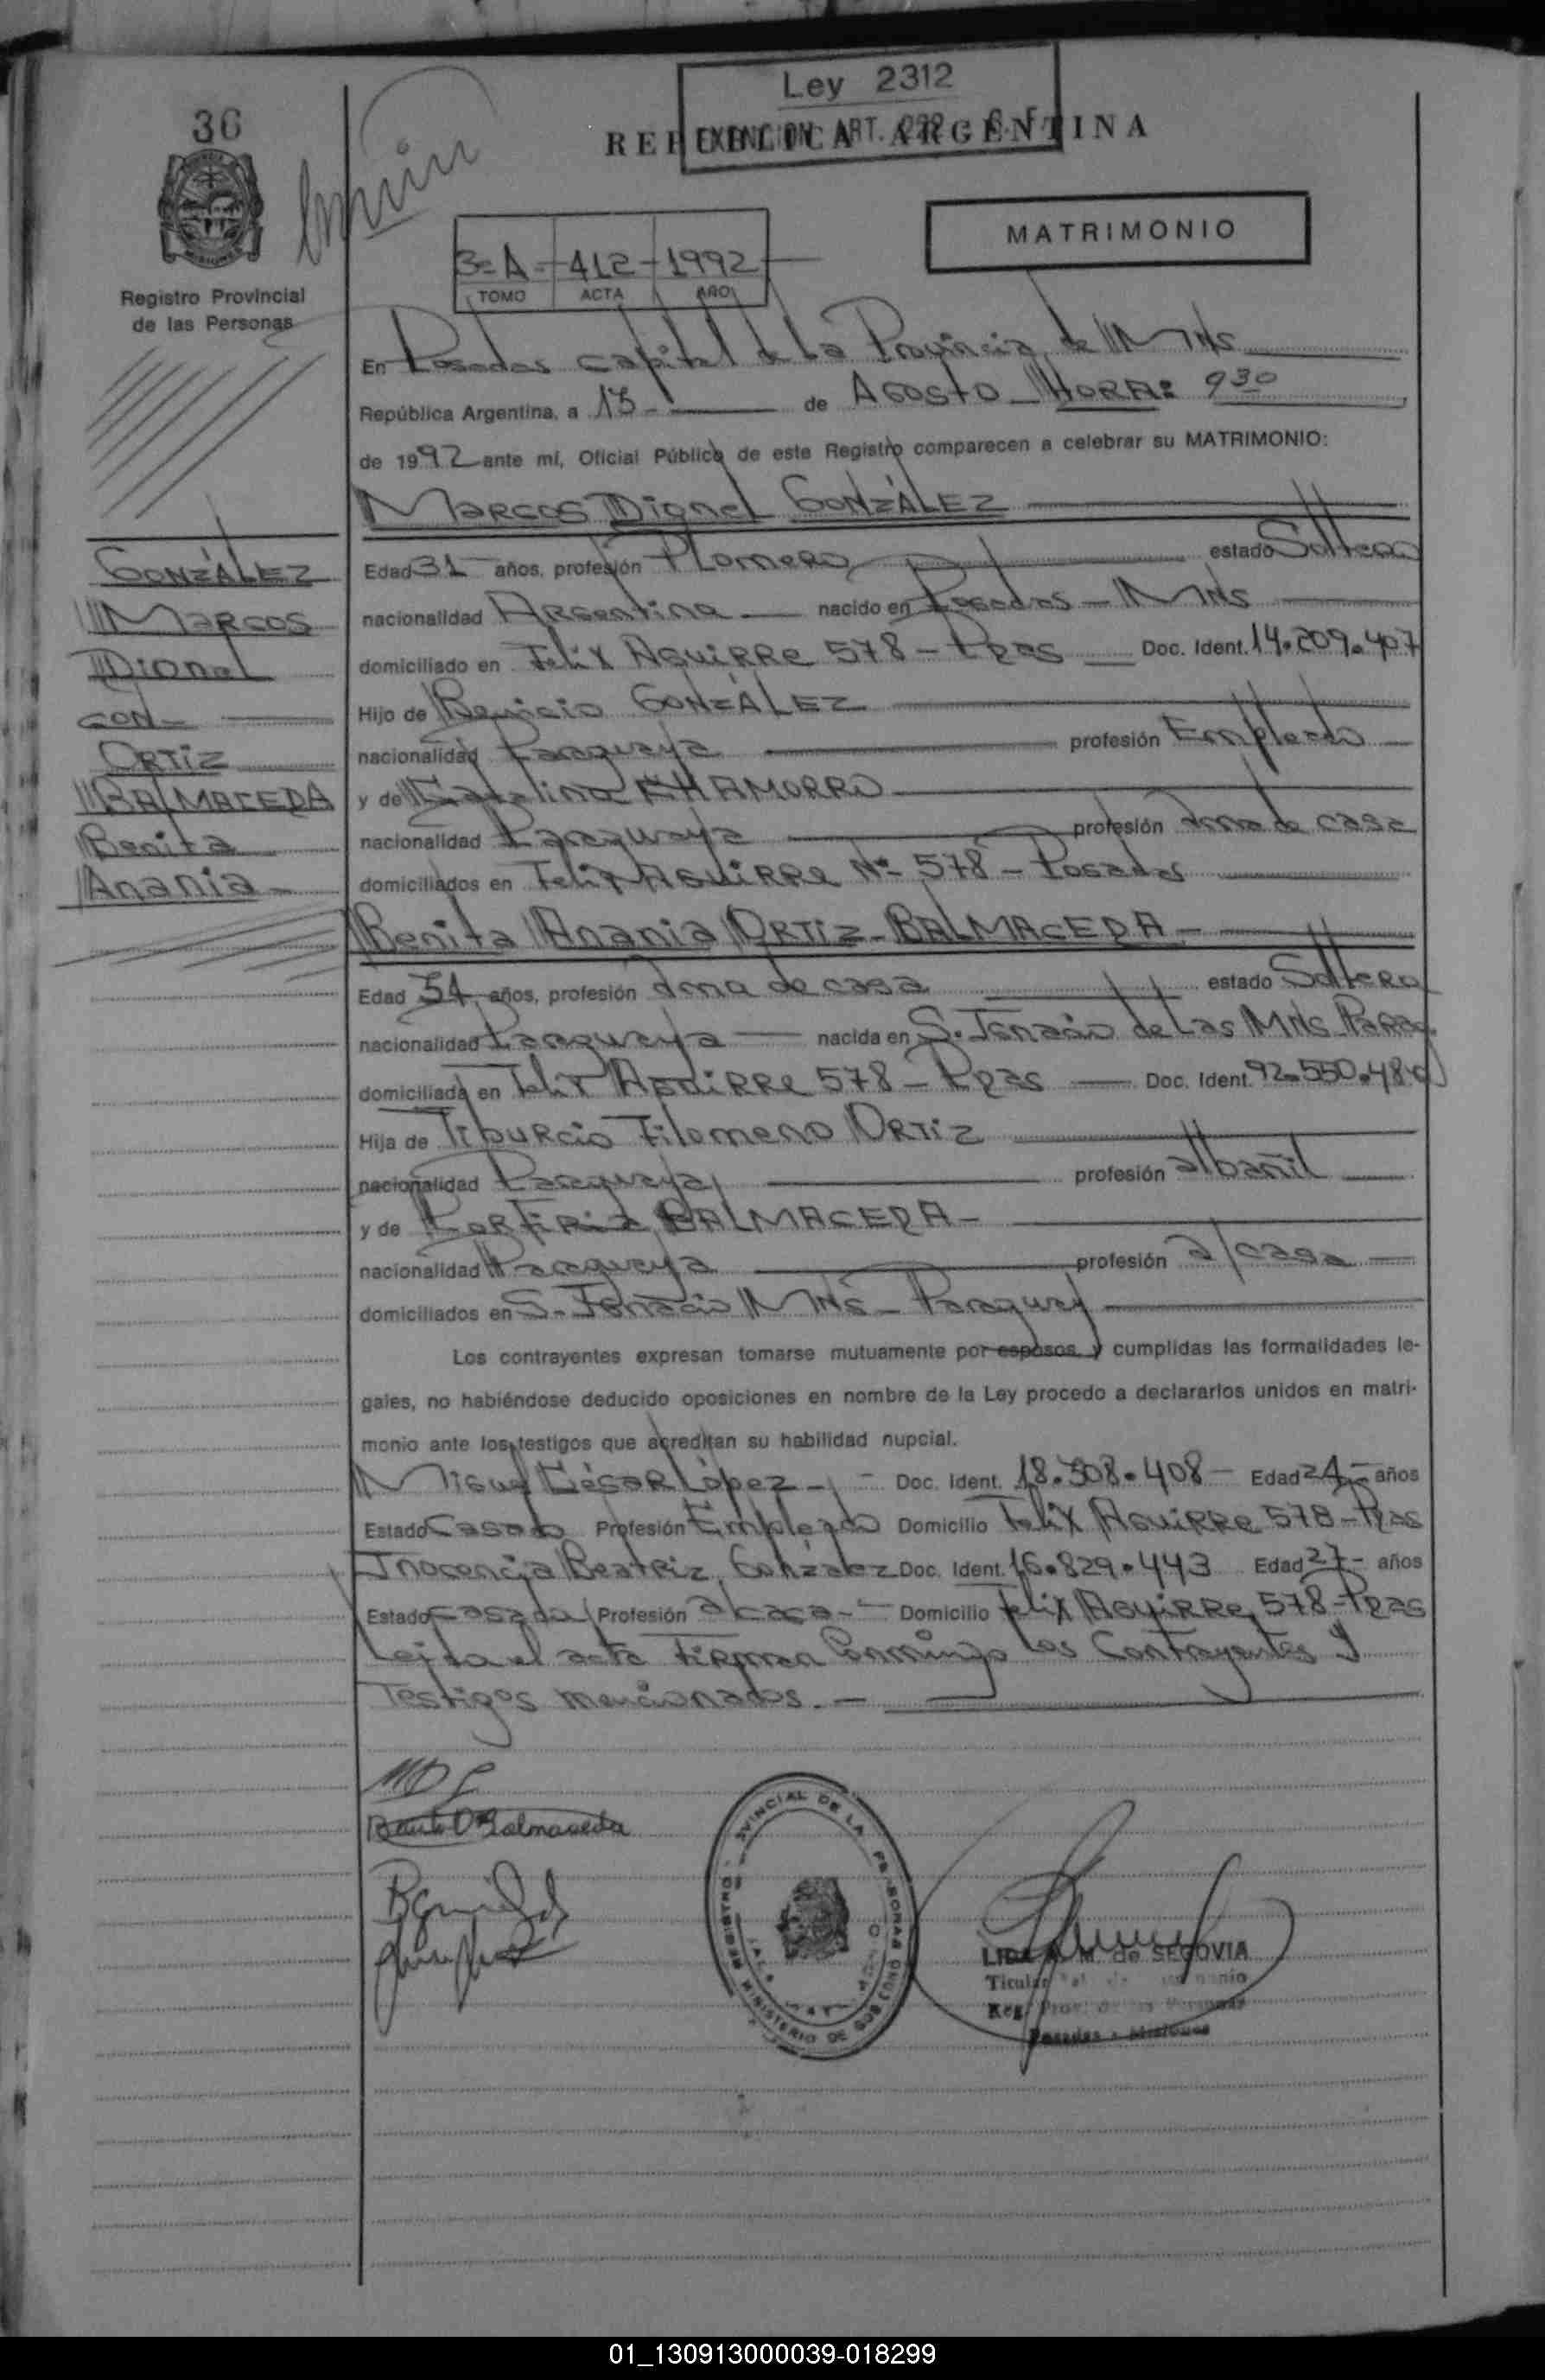 Ley 2312
36
REPUBLICA ARGENTINA
EXENCION ART.
MATRIMONIO
3-A - 412 - 1992
TOMO ACTA AÑO
Registro Provincial
de las Personas
En Posadas capital de la Provincia de Mnes
República Argentina, a 13 de AGOSTO HORA: 930
de 1992 ante mí, Oficial Público de este Registro comparecen a celebrar su MATRIMONIO:
MARCOS Dionel GONZÁLEZ
GONZÁLEZ
MARCOS
Dionel
CON-
ORTIZ
BALMACEDA
Benita
Anania
Edad 31 años, profesión Plomero estado Soltero
nacionalidad Argentina nacido en Posadas - Mnes
domiciliado en Felix Aguirre 578 - Pdas Doc. Ident. 14.209.407
Hijo de GONZÁLEZ
nacionalidad Paraguaya profesión Empleado
y de Catalina CHAMORRO
nacionalidad Paraguaya profesión ama de casa
domiciliados en Felix Aguirre Nº 578 - Posadas
Benita Anania ORTIZ BALMACEDA -
Edad 34 años, profesión ama de casa estado Soltera
nacionalidad Paraguaya nacida en S. Ignacio de Las Mnes Parag.
domiciliada en Felix Aguirre 578 - Pdas Doc. Ident. 92.550.484
Hija de Tiburcio Filomeno ORTIZ
nacionalidad Paraguaya profesión albañil
y de Porfiria BALMACEDA -
nacionalidad Paraguaya profesión a/casa
domiciliados en S. Ignacio Mnes - Paraguay
Los contrayentes expresan tomarse mutuamente por esposos y cumplidas las formalidades le-
gales, no habiéndose deducido oposiciones en nombre de la Ley procedo a declararlos unidos en matri-
monio ante los testigos que acreditan su habilidad nupcial.
Miguel César López - Doc. Ident. 18.308.408 - Edad 24 - años
Estado Casado Profesión Empleado Domicilio Felix Aguirre 578 - Pdas
Inocencia Beatriz González Doc. Ident. 16.829.443 Edad 27 - años
Estado casada Profesión a/casa - Domicilio Felix Aguirre 578 - Pdas
Leida el acta firman conmigo los Contrayentes y
Testigos mencionados. -
Balmaceda
de SEGOVIA
Titular
Reg. Prov. de las Personas
Posadas - Misiones
01_130913000039-018299